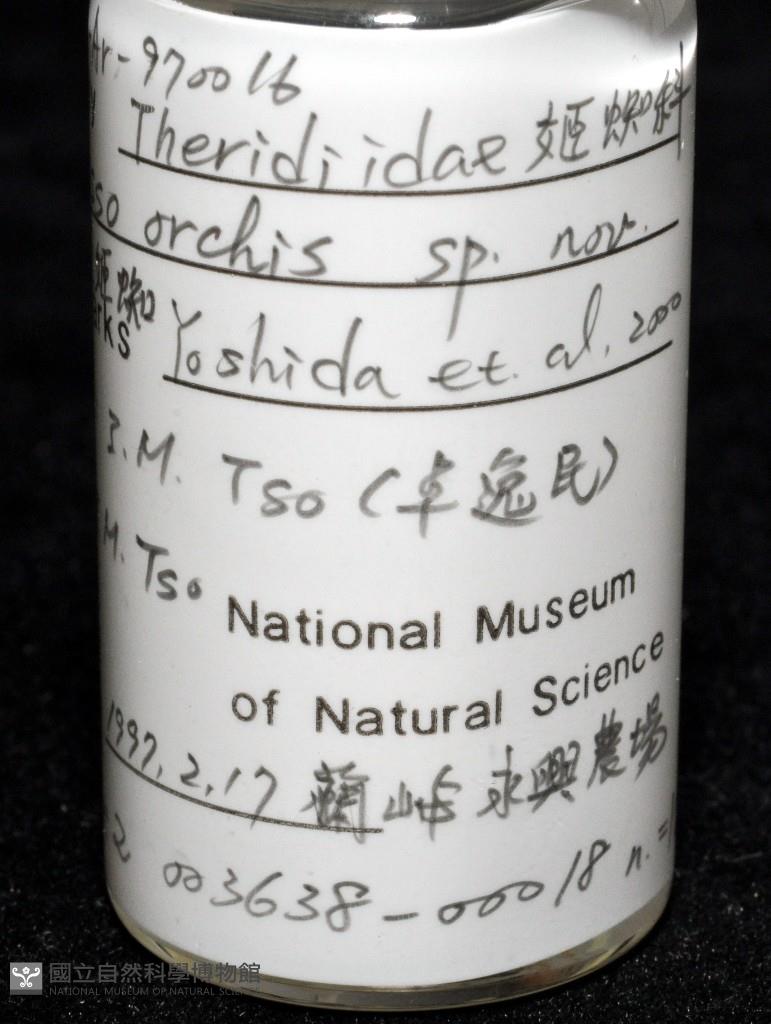 Ar-970016
Theridiidae 姬蜘科
so orchis sp. nov.
姬蜘
rks Yoshida et. al, 2000
I.M. Tso (卓逸民)
M. Tso
National Museum
of Natural Science
1997,2,17 蘭屿永興農場
2 003638-00018 n.=
國立自然科學博物館
NATIONAL MUSEUM OF NATURAL SCIENCE